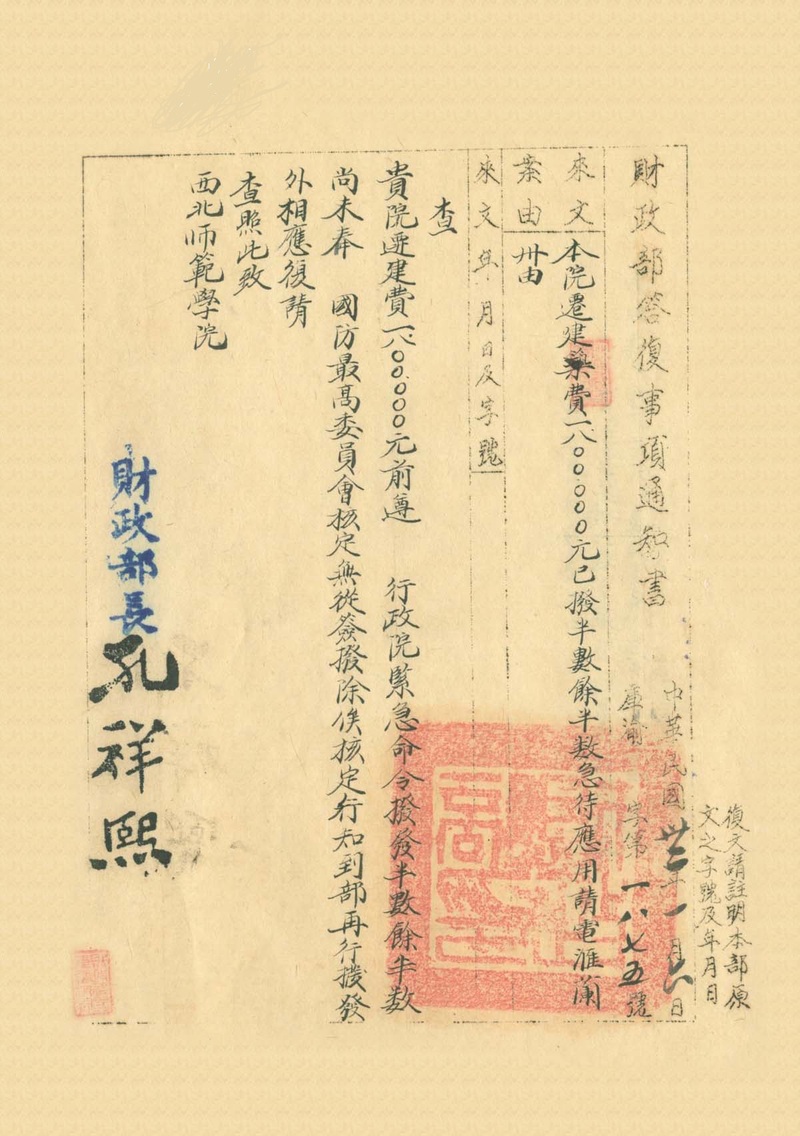 復文請註明本部原
文之字號及年月日
財政部答復事項通知書
中華民國卅二年一月六日
庫渝字第一八七五號
來文案由
本院遷建築費一八〇〇.〇〇〇元已撥半數餘半數急待應用請電滙蘭
卅由
來文年月日及字號
查
貴院遷建費一八〇〇.〇〇〇元前遵 行政院緊急命令撥發半數餘半數
尚未奉 國防最高委員會核定無從簽撥除俟核定行知到部再行撥發
外相應復請
查照此致
西北师範學院
財政部長孔祥熙